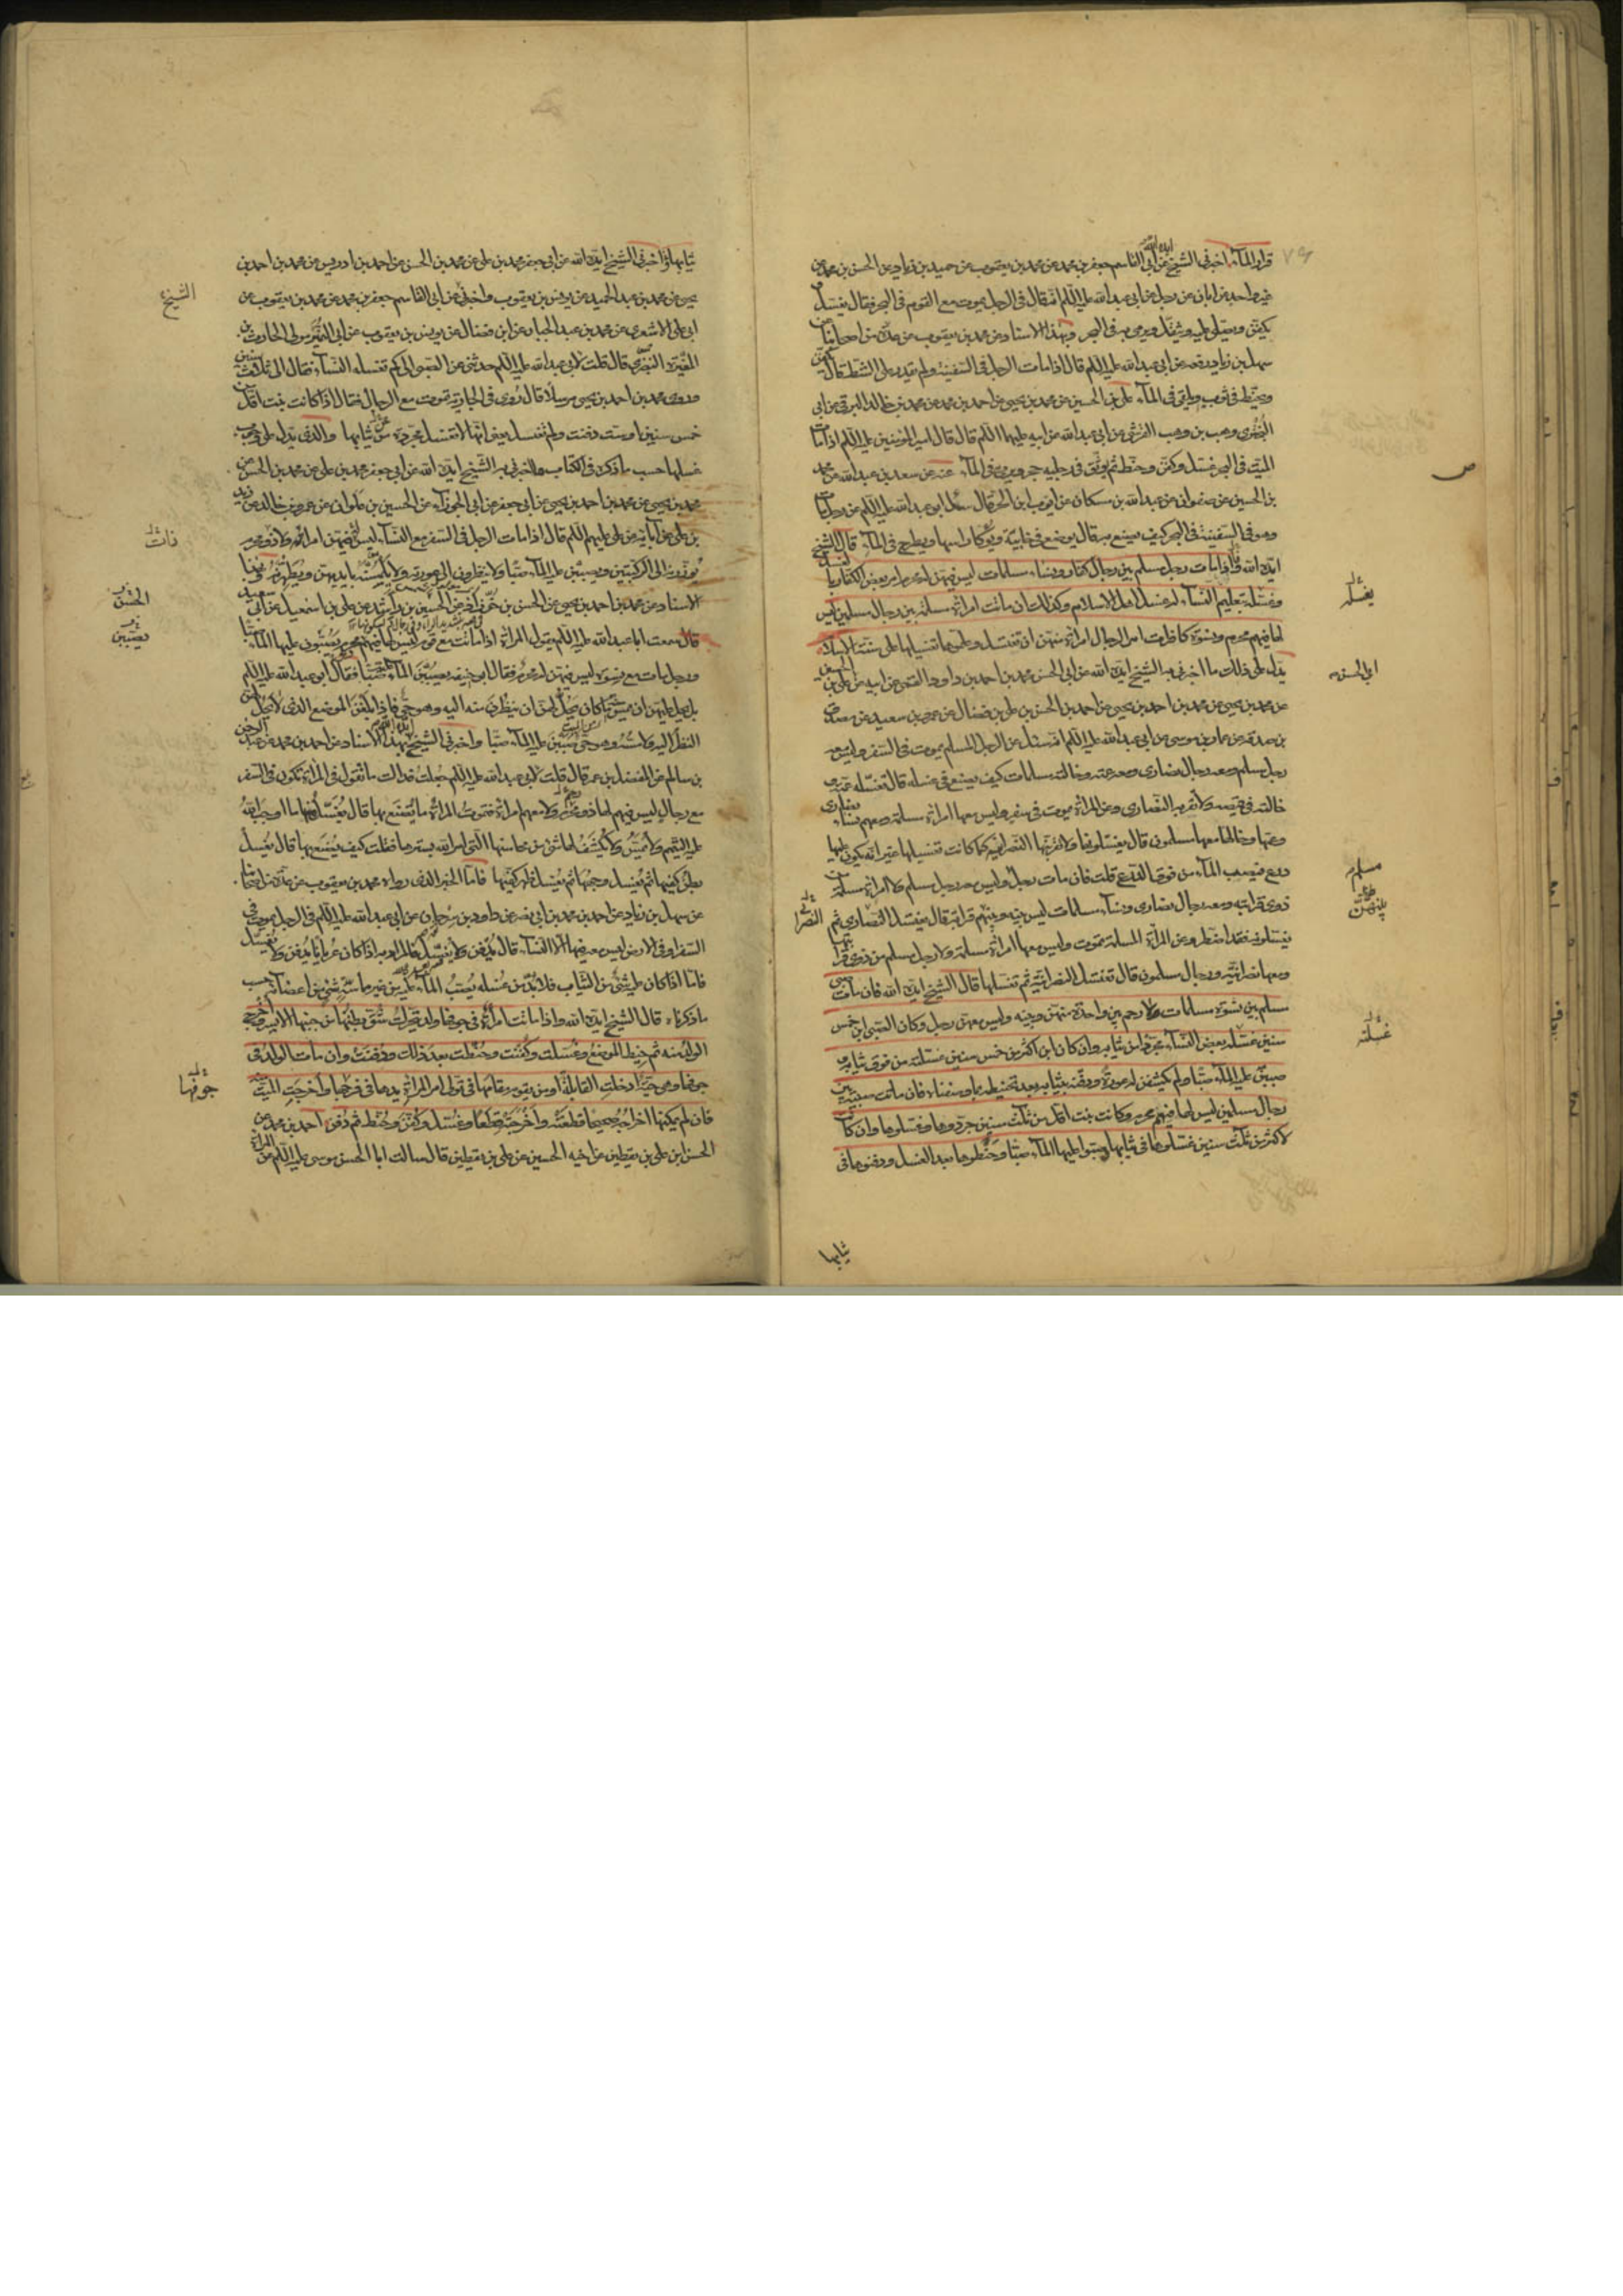 قرار الماء اخبرنى الشيخ ايده الله عن ابى القاسم جعفر بن محمد عن محمد بن يعقوب عن حميد بن زياد عن الحسن بن محمد عن
غير واحد عن ابان عن رجل عن ابى عبدالله عليه السلم انه قال فى الرجل يموت مع القوم فى البحر فقال يغسل و
يكفن ويصلى عليه ويثقل ويرمى به فى البحر وبهذا الاسناد عن محمد بن يعقوب عن عدة من اصحابنا عن
سهل بن زياد رفعه عن ابى عبدالله عليه السلم قال اذا مات الرجل فى السفينة ولم يقدر على الشط قال يكفن
ويحنط فى ثوب ويلقى فى الماء على بن الحسين عن محمد بن يحيى عن احمد بن محمد عن محمد بن خالد البرقى عن ابى
البخترى وهب بن وهب القرشى عن ابى عبدالله عن ابيه عليهما السلم قال قال امير المؤمنين عليه السلم اذا مات
الميت فى البحر غسل وكفن وحنط ثم يوثق فى رجليه حجر ويرمى به فى الماء عنه عن سعد بن عبدالله عن محمد
بن الحسين عن صفوان عن عبدالله بن مسكان عن ايوب ابن الحر قال سئل ابو عبدالله عليه السلم عن رجل مات
وهو فى السفينة فى البحر كيف يصنع به قال يوضع فى خابية ويوكأ راسها ويطرح فى الماء قال الشيخ
ايده الله فان مات رجل مسلم بين رجال كفار ونساء مسلمات ليس فيهن له محرم امر بعض الكفار بالغسل
وغسله بتعليم النساء له غسل اهل الاسلام وكذلك ان ماتت امراة مسلمة بين رجال مسلمين ليس
لها فيهم محرم ونسوة كافرات امر الرجال امراة منهن ان تغتسل وعلموها تغسيلها على سنة الاسلام
يدل على ذلك ما اخبرنى به الشيخ ايده الله عن ابى الحسن محمد بن احمد بن داود القمى عن ابيه عن على بن الحسين
عن محمد بن يحيى عن محمد بن احمد بن يحيى عن احمد بن الحسن بن على بن فضال عن عمرو بن سعيد عن مصدق
بن صدقة عن عمار بن موسى عن ابى عبدالله عليه السلم انه سئل عن الرجل المسلم يموت فى السفر وليس معه
رجل مسلم ومعه رجال نصارى ومعه عمته وخالته مسلمات كيف يصنع فى غسله قال تغسله عمته و
خالته فى قميصه ولا تقربه النصارى وعن المراة تموت فى سفر وليس معها امراة مسلمة ومعهم نساء نصارى
وعمها وخالها معها مسلمون قال يغسلونها ولا تقربنها النصرانية كما كانت تغسلها غير انه يكون عليها
درع فيصب الماء من فوق الدرع قلت فان مات رجل وليس معه رجل مسلم ولا امراة مسلمة من
ذوى قرابته ومعه رجال نصارى ونساء مسلمات ليس بينه وبينهم قرابة قال يغتسل النصارى ثم
يغسلونه فقد اضطر وعن المراة المسلمة تموت وليس معها امراة مسلمة ولا رجل مسلم من ذوى قرابتها
ومعها نصرانية ورجال مسلمون قال تغتسل النصرانية ثم تغسلها قال الشيخ ايده الله فان مات صبى
مسلم بين نسوة مسلمات لا رحم بين واحدة منهن وبينه وليس معهن رجل وكان الصبى ابن خمس
سنين غسله بعض النساء مجردا من ثيابه وان كان ابن اكثر من خمس سنين غسلنه من فوق ثيابه و
صببن عليه الماء صبا ولم يكشفن له عورة ودفنه بثيابه بعد تحنيطه بما وصفناه فان ماتت صبية بين
رجال مسلمين ليس لها فيهم محرم وكانت بنت اقل من ثلث سنين جردوها وغسلوها وان كانت
لاكثر من ثلث سنين غسلوها فى ثيابها وصبوا عليها الماء صبا وحنطوها بعد الغسل ودفنوها فى
ثيابها
يغسله
ابى الحسن
مسلم
غسلته
ص
ثيابها واخبرنى الشيخ ايده الله عن ابى جعفر محمد بن على عن محمد بن الحسن عن احمد بن ادريس عن محمد بن احمد بن
يحيى عن محمد بن عبد الحميد عن يونس بن يعقوب واخبرنى عن ابى القاسم جعفر بن محمد عن محمد بن يعقوب عن
ابى على الاشعرى عن محمد بن عبد الجبار عن ابن فضال عن يونس بن يعقوب عن ابى النمير مولى الحارث بن
المغيرة النصرى قال قلت لابى عبدالله عليه السلم حدثنى عن الصبى الى كم تغسله النساء فقال الى ثلاث سنين
وروى محمد بن احمد بن يحيى مرسلا قال روى فى الجارية تموت مع الرجال فقال اذا كانت بنت اقل من
خمس سنين او ست دفنت ولم تغسل يعنى انها لا تغسل مجردة من ثيابها والذى يدل على وجوب
غسلها حسب ما ذكره فى الكتاب ما اخبرنى به الشيخ ايده الله عن ابى جعفر محمد بن على عن محمد بن الحسن عن
محمد بن يحيى عن محمد بن احمد بن يحيى عن ابى جعفر عن ابى الجوزاء عن الحسين بن علوان عن عمرو بن خالد عن زيد
بن على عن آبائه عن على عليهم السلم قال اذا مات الرجل فى السفر مع النساء ليس فيهن امراته ولا ذو محرم
يوزرنه الى الركبتين ويصببن عليه الماء صبا ولا ينظرن الى عورته ولا يلمسنه بايديهن ويطهرنه وبهذا
الاسناد عن محمد بن احمد بن يحيى عن الحسن بن خرزاد عن الحسين بن راشد عن على بن اسمعيل عن ابى سعيد
قال سمعت ابا عبدالله عليه السلم يقول المراة اذا ماتت مع قوم ليس لها فيهم محرم يصبون عليها الماء صبا
ورجل مات مع نسوة ليس فيهن له محرم فقال ابو حنيفه يصببن الماء صبا فقال ابو عبدالله عليه السلم
بل يحل لهن ان يمسسن منه ما كان يحل لهن ان ينظرن منه اليه وهو حى فاذا بلغن الموضع الذى لا يحل لهن
النظر اليه ولا مسه وهو حى صببن عليه الماء صبا واخبرنى الشيخ ايده الله بهذا الاسناد عن احمد بن محمد عن عبد الرحمن
بن سالم عن المفضل بن عمر قال قلت لابى عبدالله عليه السلم جعلت فداك ما تقول فى المراة تكون فى السفر
مع رجال ليس فيهم لها ذو محرم ولا معهم امراة فتموت المراة ما يصنع بها قال يغسل منها ما اوجب الله
عليه التيمم ولا تمس ولا يكشف لها شئ من محاسنها التى امر الله بسترها فقلت كيف يصنع بها قال يغسل
بطن كفيها ثم يغسل وجهها ثم يغسل ظهر كفيها فاما الخبر الذى رواه محمد بن يعقوب عن عدة من اصحابنا
عن سهل بن زياد عن احمد بن محمد بن ابى نصر عن داود بن سرحان عن ابى عبدالله عليه السلم فى الرجل يموت فى
السفر او فى الارض ليس معه فيها الا النساء قال يدفن ولا يغسل فالمراد به اذا كان عريانا يدفن ولا يغسل
فاما اذا كان عليه شئ من الثياب فلا بد من غسله يصب الماء عليه من غير مماسة شئ من اعضائه حسب
ما ذكرناه قال الشيخ ايده الله واذا ماتت امراة وفى جوفها ولد يتحرك شق بطنها من جنبها الايسر واخرج
الولد منه ثم خيط الموضع وغسلت وكفنت وحنطت بعد ذلك ودفنت وان مات الولد فى
جوفها وهى حية ادخلت القابلة او من يقوم مقامها فى تولى امر المراة يدها فى فرجها واخرجت الميت منه
فان لم يمكنها اخراجه صحيحا قطعته واخرجته قطعا وغسل وكفن وحنط ثم دفن احمد بن محمد عن
الحسن ابن على بن يقطين عن اخيه الحسين عن على بن يقطين قال سالت ابا الحسن موسى عليه السلم عن المراة
الشيخ
ذات
الحسن
يصببن
جوفها